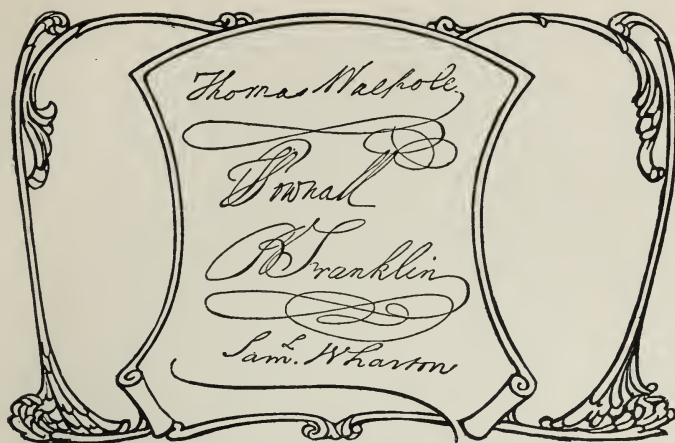 Thomas Walpole
J Pownall
B Franklin
Saml. Wharton